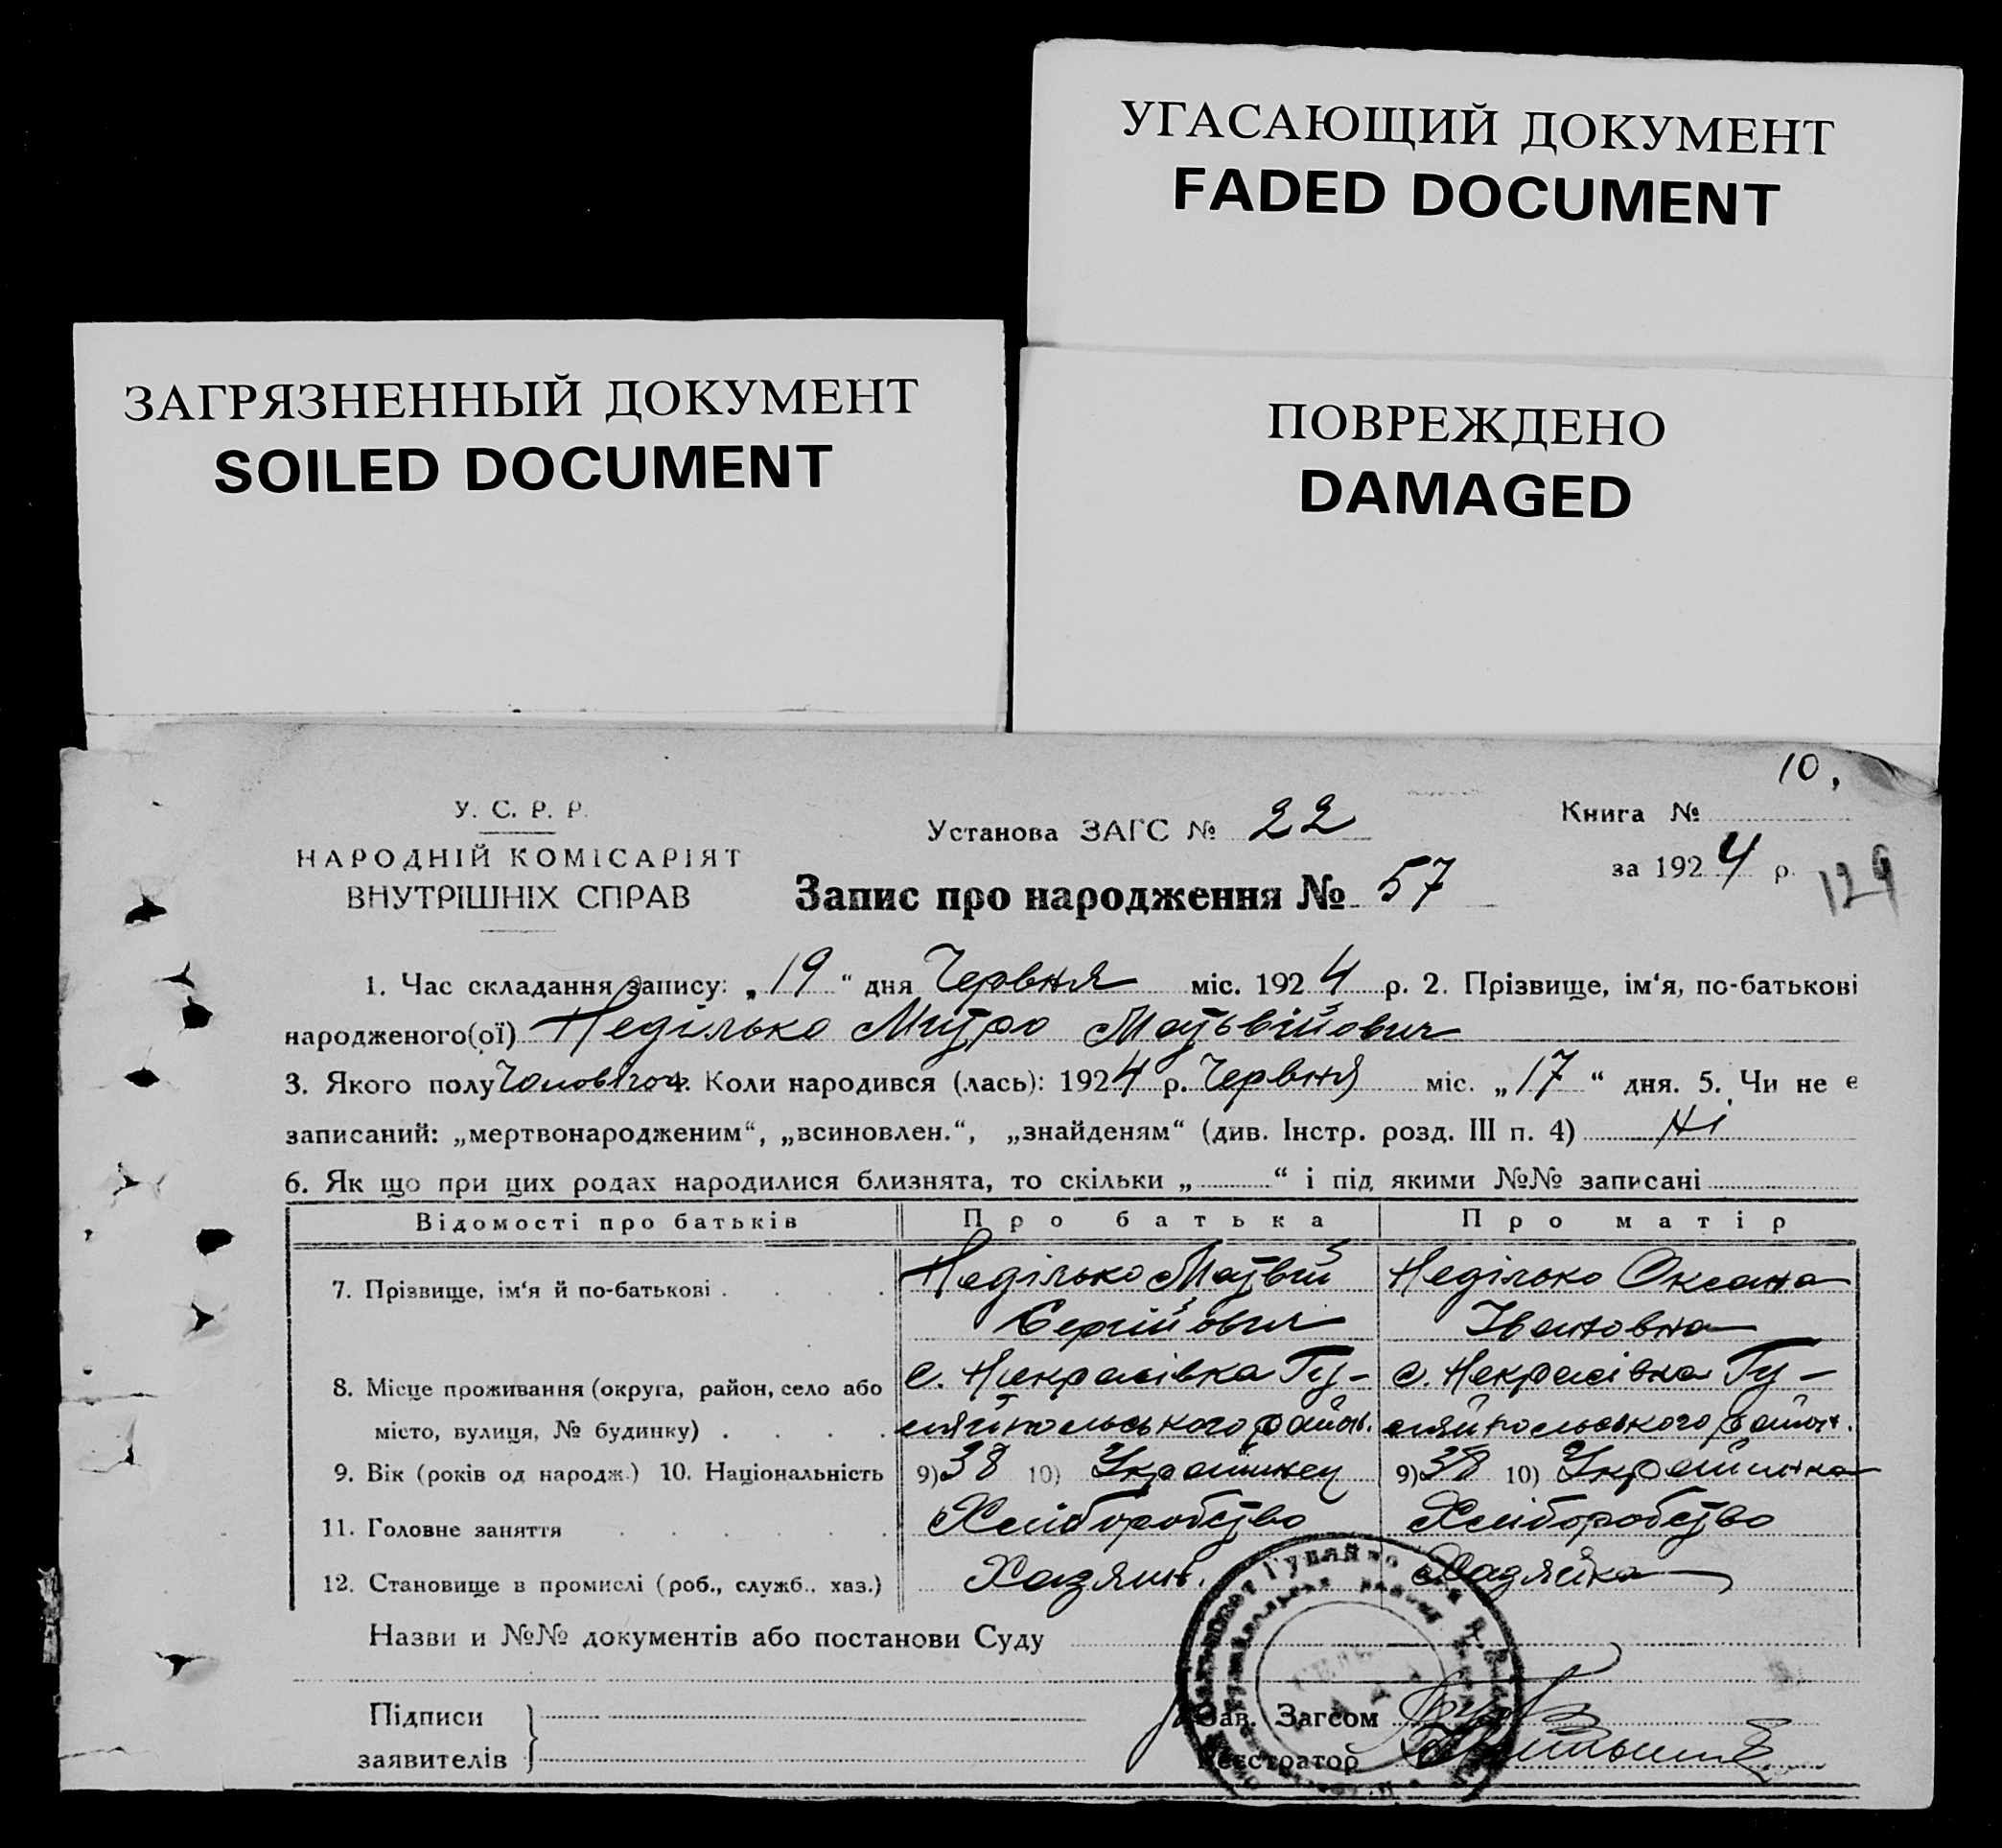 УГАСАЮЩИЙ ДОКУМЕНТ
FADED DOCUMENT
ЗАГРЯЗНЕННЫЙ ДОКУМЕНТ
SOILED DOCUMENT
ПОВРЕЖДЕНО
DAMAGED
10.
У. С. Р. Р.
НАРОДНІЙ КОМІСАРІЯТ
ВНУТРІШНІХ СПРАВ
Установа ЗАГС № 22
Книга №
за 1924 р.
129
Запис про народження № 57
1. Час складання запису: „19“ дня Червня міс. 1924 р. 2. Прізвище, ім‘я, по-батькові
народженого(ої) Неділько Митро Матьвійович
3. Якого полу Чоловічої 4. Коли народився (лась): 1924 р. Червня міс. „17“ дня. 5. Чи не є
записаний: „мертвонародженим“, „всиновлен.“, „знайденям“ (див. Інстр. розд. III п. 4) Ні
6. Як що при цих родах народилися близнята, то скільки „ “ і під якими №№ записані
Відомості про батьків Про батька Про матір
7. Прізвище, ім‘я й по-батькові . Неділько Матвій Неділько Оксана
Сергійович Івановна
8. Місце проживання (округа, район, село або с. Некрасівка Гу- с. Некрасівка Гу-
місто, вулиця, № будинку) . ляйпольського район. ляйпольського район.
9. Вік (років од народж.) 10. Національність 9) 38 10) Українец 9) 38 10) Українка
11. Головне заняття Хліборобство Хліборобство
12. Становище в промислі (роб., служб., хаз.) Хазяин. Хазяйка
Назви и №№ документів або постанови Суду
Підписи
заявителів
Зав. Загсом
Реєстратор